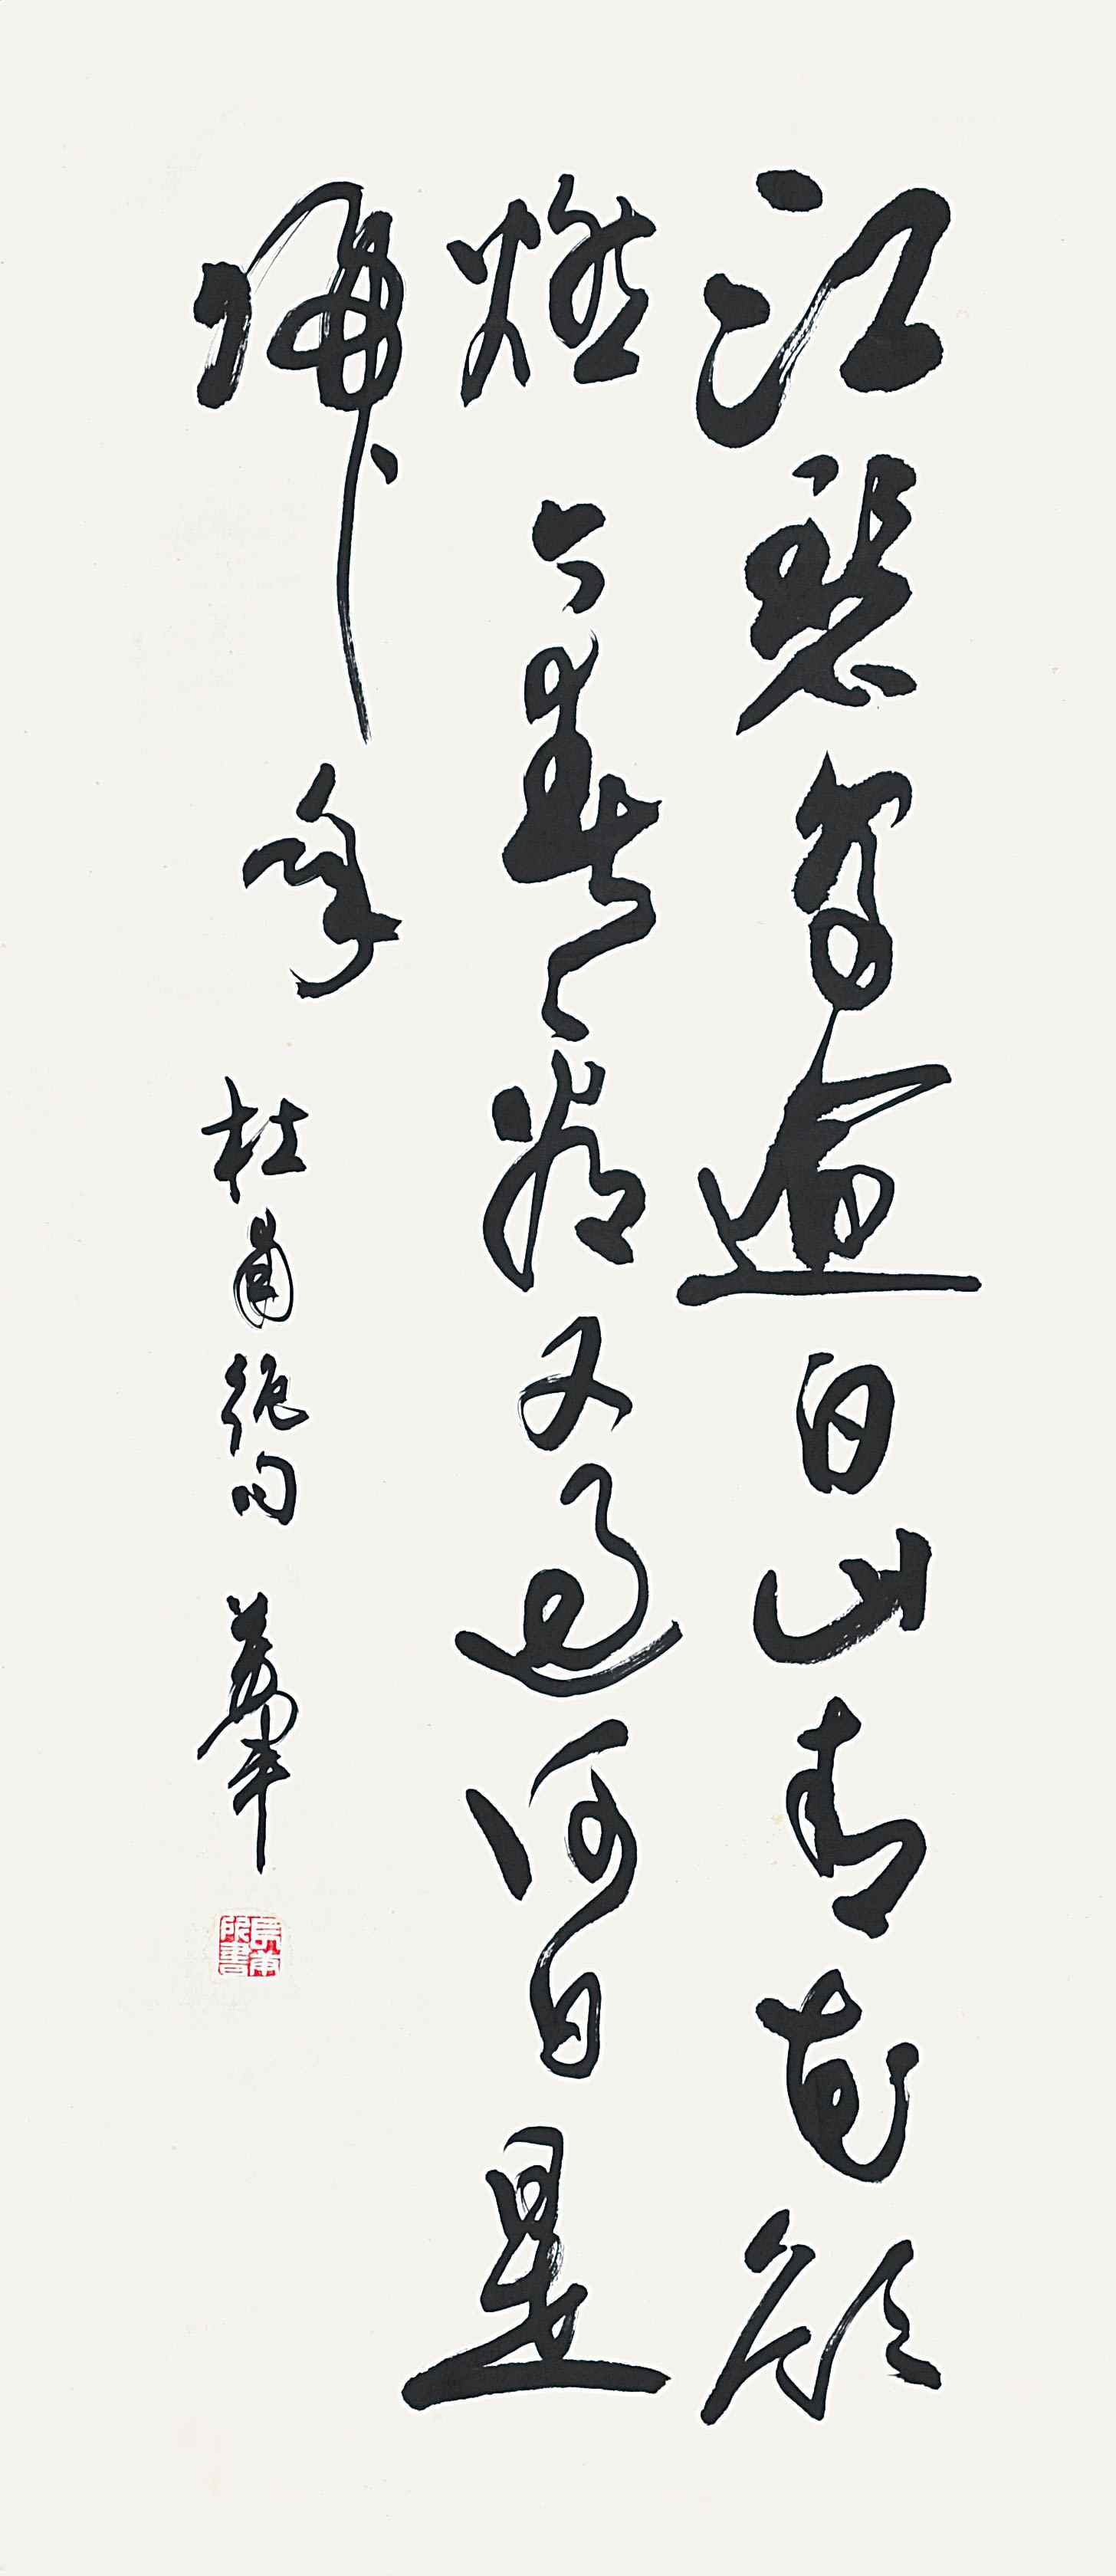 江碧鳥逾白山青花欲
燃今春看又過何日是
歸年 杜甫絕句